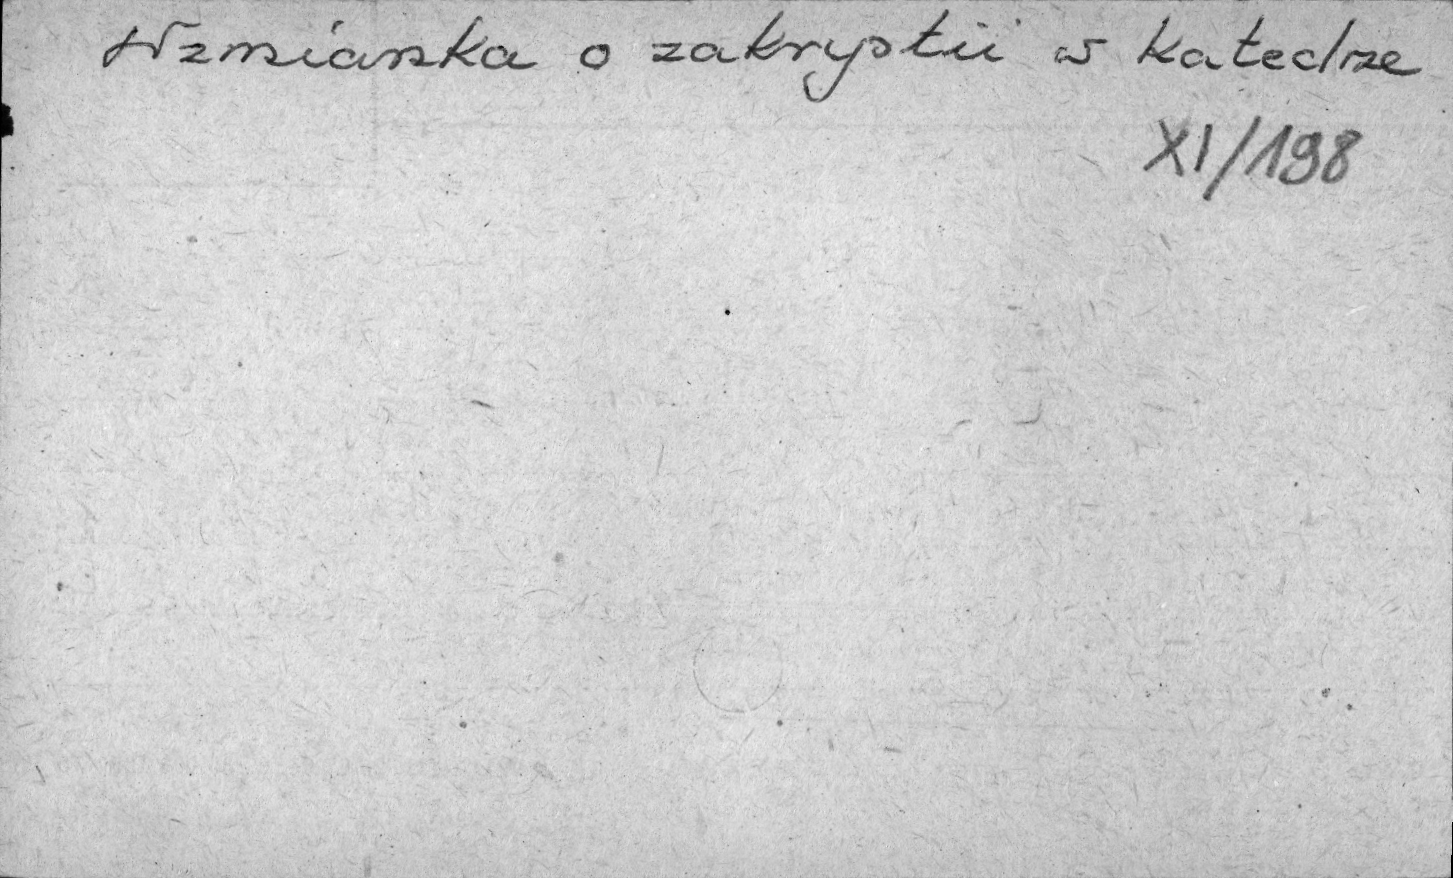 Wzmianka o zakrystii w katedrze
XI/198